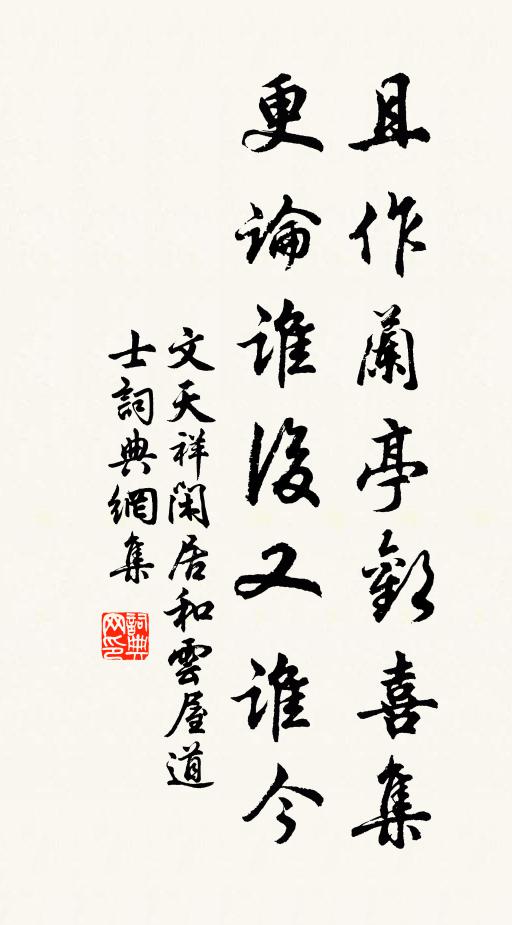 且作蘭亭歡喜集
更論誰後又誰今
文天祥閑居和雲屋道
士詞典網集
詞典
网印